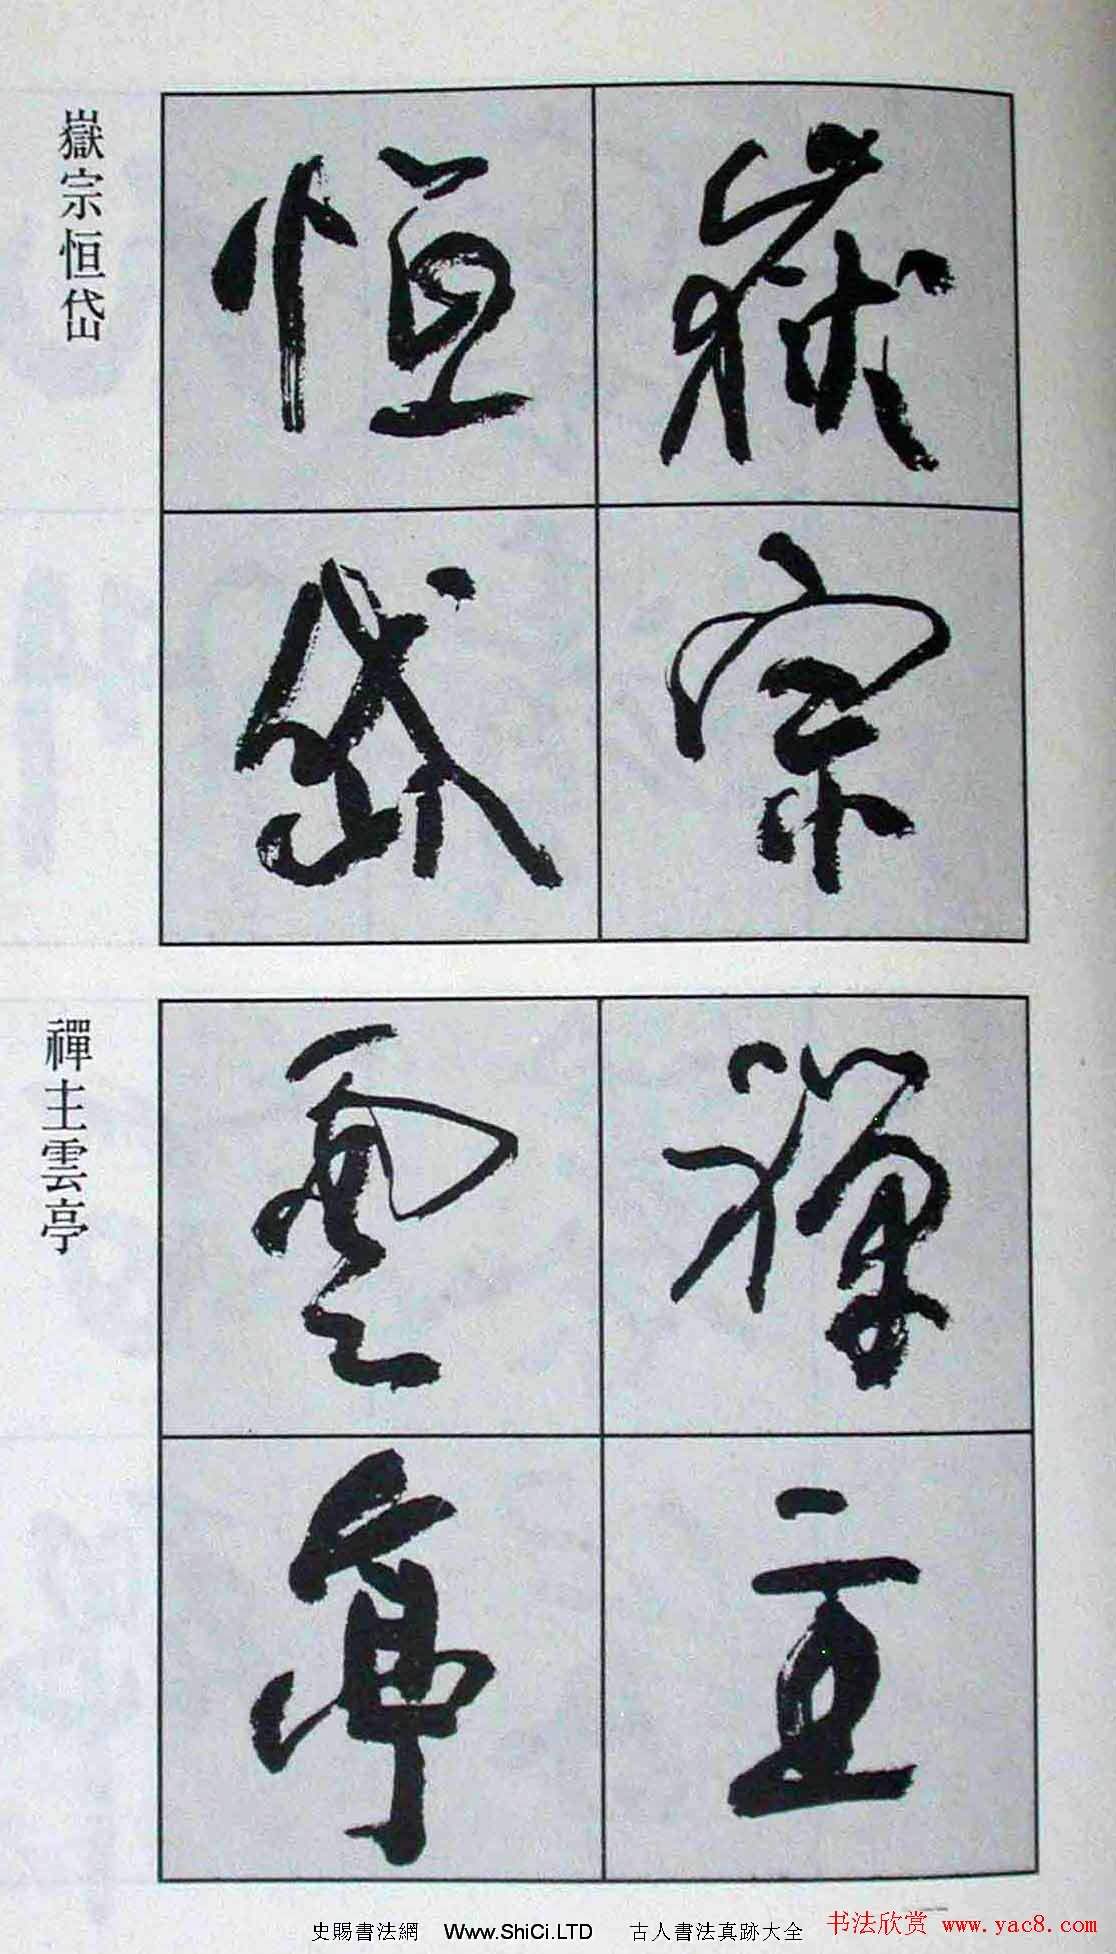 嶽宗恒岱
嶽宗
恒岱
禪主雲亭
禪主
雲亭
史賜書法網 Www.ShiCi.LTD 古人書法真跡大全
书法欣赏 www.yac8.com